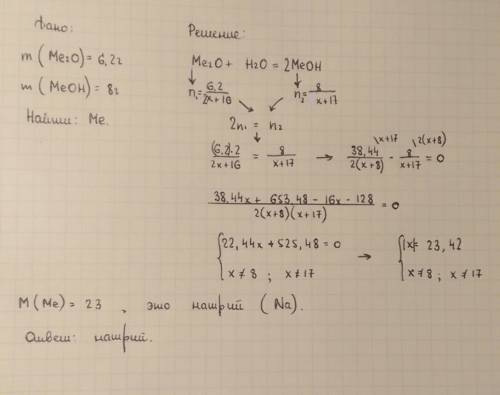 Дано:
m (Me₂O) = 6,2г
m (MeOH) = 8г
Найти: Me.
Решение:
Me₂O + H₂O = 2MeOH
n₁ = 6,2 / 2x+16    n₂ = 8 / x+17
2n₁ = n₂
(6,2)·2 / 2x+16 = 8 / x+17 → 38,44 / 2(x+8) \x+17 - 8 / x+17 \2(x+8) = 0
38,44x + 653,48 - 16x - 128 / 2(x+8)(x+17) = 0
{ 22,44x + 525,48 = 0 → { |x| = 23,42
x ≠ 8 ; x ≠ 17    x ≠ 8 ; x ≠ 17
M (Me) = 23 , это натрий (Na).
Ответ: натрий.